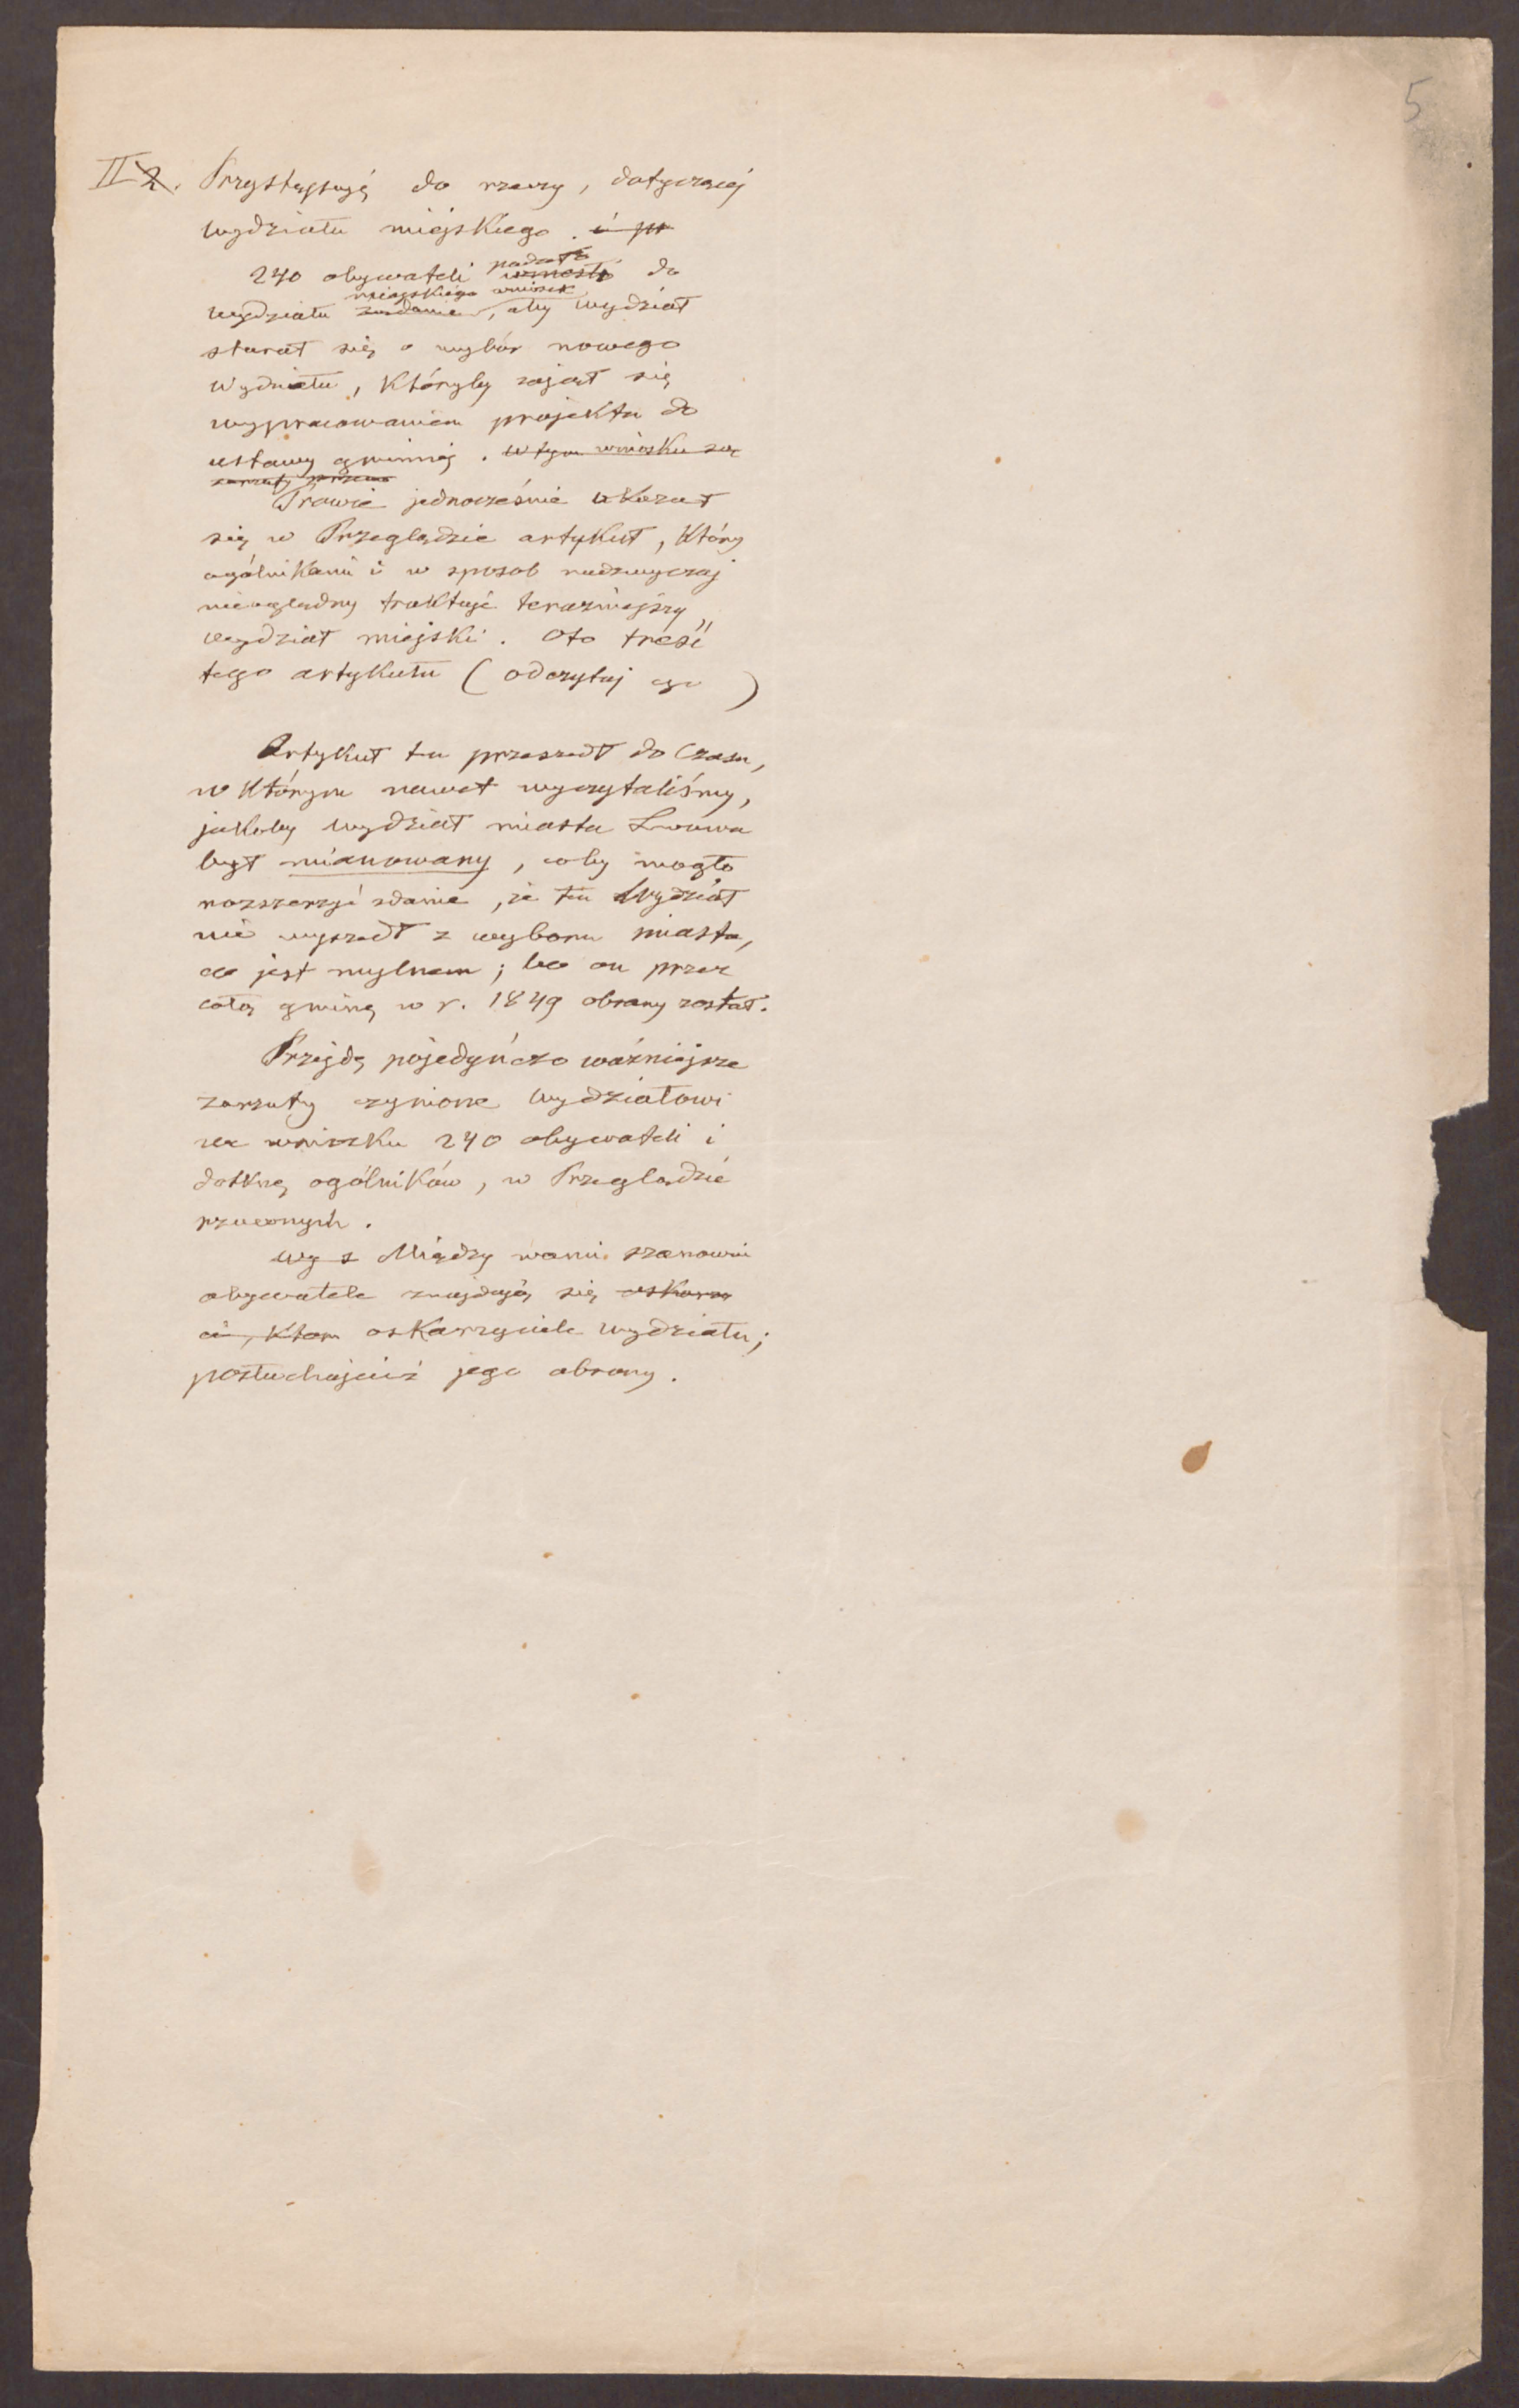 5
II 2. Przystępuję do rzeczy, dotyczącej
wydziału miejskiego. i pr
240 obywateli wniosło podało do
wydziału żądanie miejskiego wniosek, aby wydział
starał się o wybór nowego
wydziału, któryby zajął się
wypracowaniem projektu do
ustawy gminnej. w tym wniosku są
zarzuty
Prawie jednocześnie ukazał
się w Przeglądzie artykuł, który
ogólnikami i w sposób nadzwyczaj
nieoględny traktuje teraźniejszy
wydział miejski. Oto treść
tego artykułu (odczytaj go)
Artykuł ten przeszedł do Czasu,
w którym nawet wyczytaliśmy,
jakoby wydział miasta Lwowa
był mianowany, coby mogło
rozszerzyć zdanie, że ten Wydział
nie wyszedł z wyboru miasta,
co jest mylnem; bo on przez
całą gminę w r. 1849 obrany został.
Przejdę pojedyńczo ważniejsze
zarzuty czynione wydziałowi
we wniosku 240 obywateli i
dotknę ogólników, w Przeglądzie
rzuconych.
wy s Między wami szanowni
obywatele znajdują się oskarza
ci, którz oskarzyciele wydziału;
posłuchajcież jego obrony.